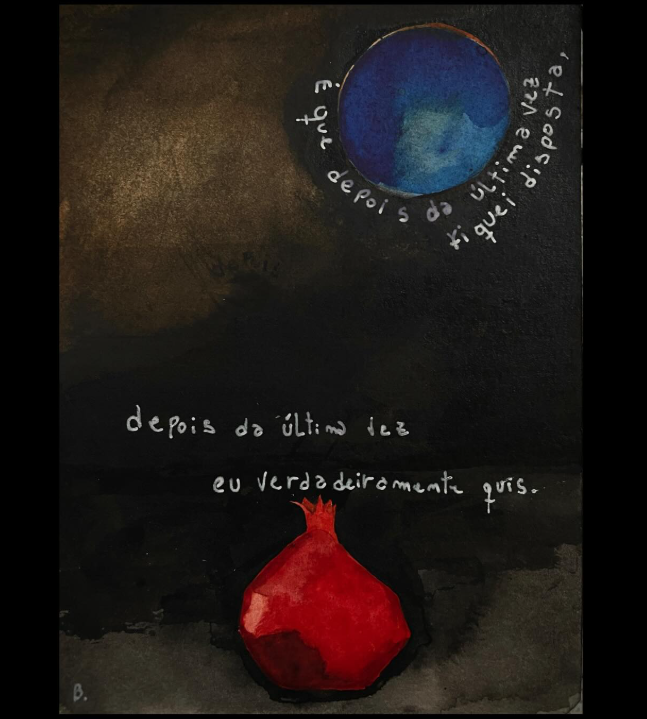 E que depois da última vez
fiquei disposta,
depois da última vez
eu verdadeiramente quis.
B.